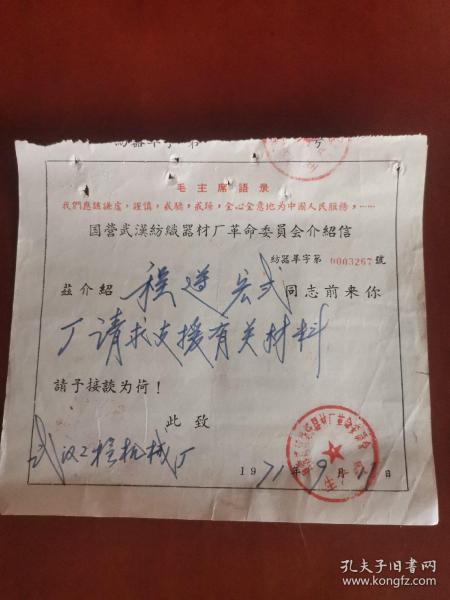 毛主席語录
我們應該謙虛,謹慎,戒驕,戒躁,全心全意地为中國人民服務,……
国营武漢紡織器材厂革命委員会介紹信
紡器革字第 0003267 號
茲介紹 程遵宏式 同志前来你
厂请求支援有关材料
請予接談为荷!
此致
武汉工程机械厂
1971年9月 日
孔夫子旧书网
www.kongfz.com